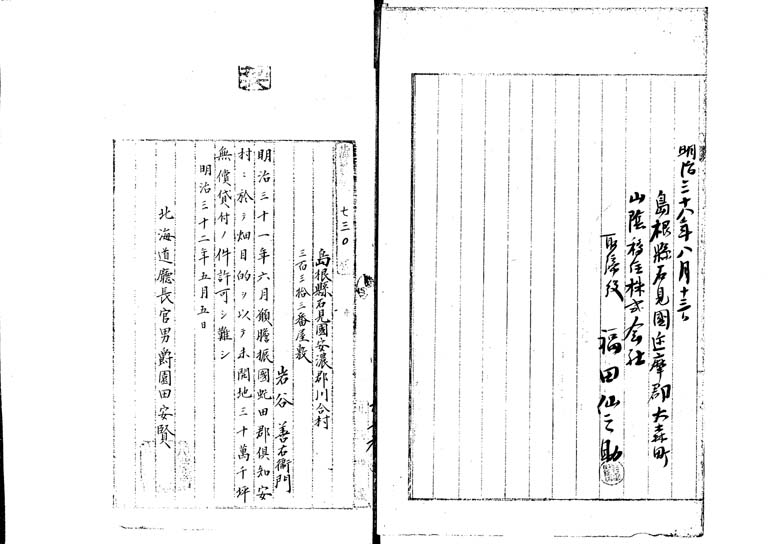 明治三十八年八月十三日
島根縣石見國迩摩郡大森町
山陰移住株式会社
取締役 福田仙之助
七三〇
島根縣石見國安濃郡川合村
三百三拾三番屋敷
岩谷善右衞門
明治三十一年六月願膽振國虻田郡俱知安
村ニ於テ畑目的ヲ以テ未開地三十萬千坪
無償貸付ノ件許可シ難シ
明治三十二年五月五日
北海道廳長官男爵園田安賢